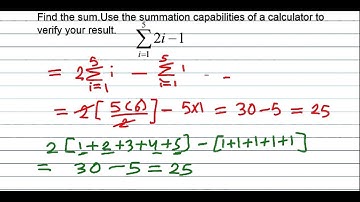 Find the sum.Use the summation capabilities of a calculator to
verify your result. \sum_{i=1}^{5} 2i − 1
= 2 \sum_{i=1}^{5} i − \sum_{i=1}^{5} 1
= 2 [ 5(6) / 2 ] − 5×1 = 30−5 = 25
2 [1+2+3+4+5] − [1+1+1+1+1]
= 30 − 5 = 25